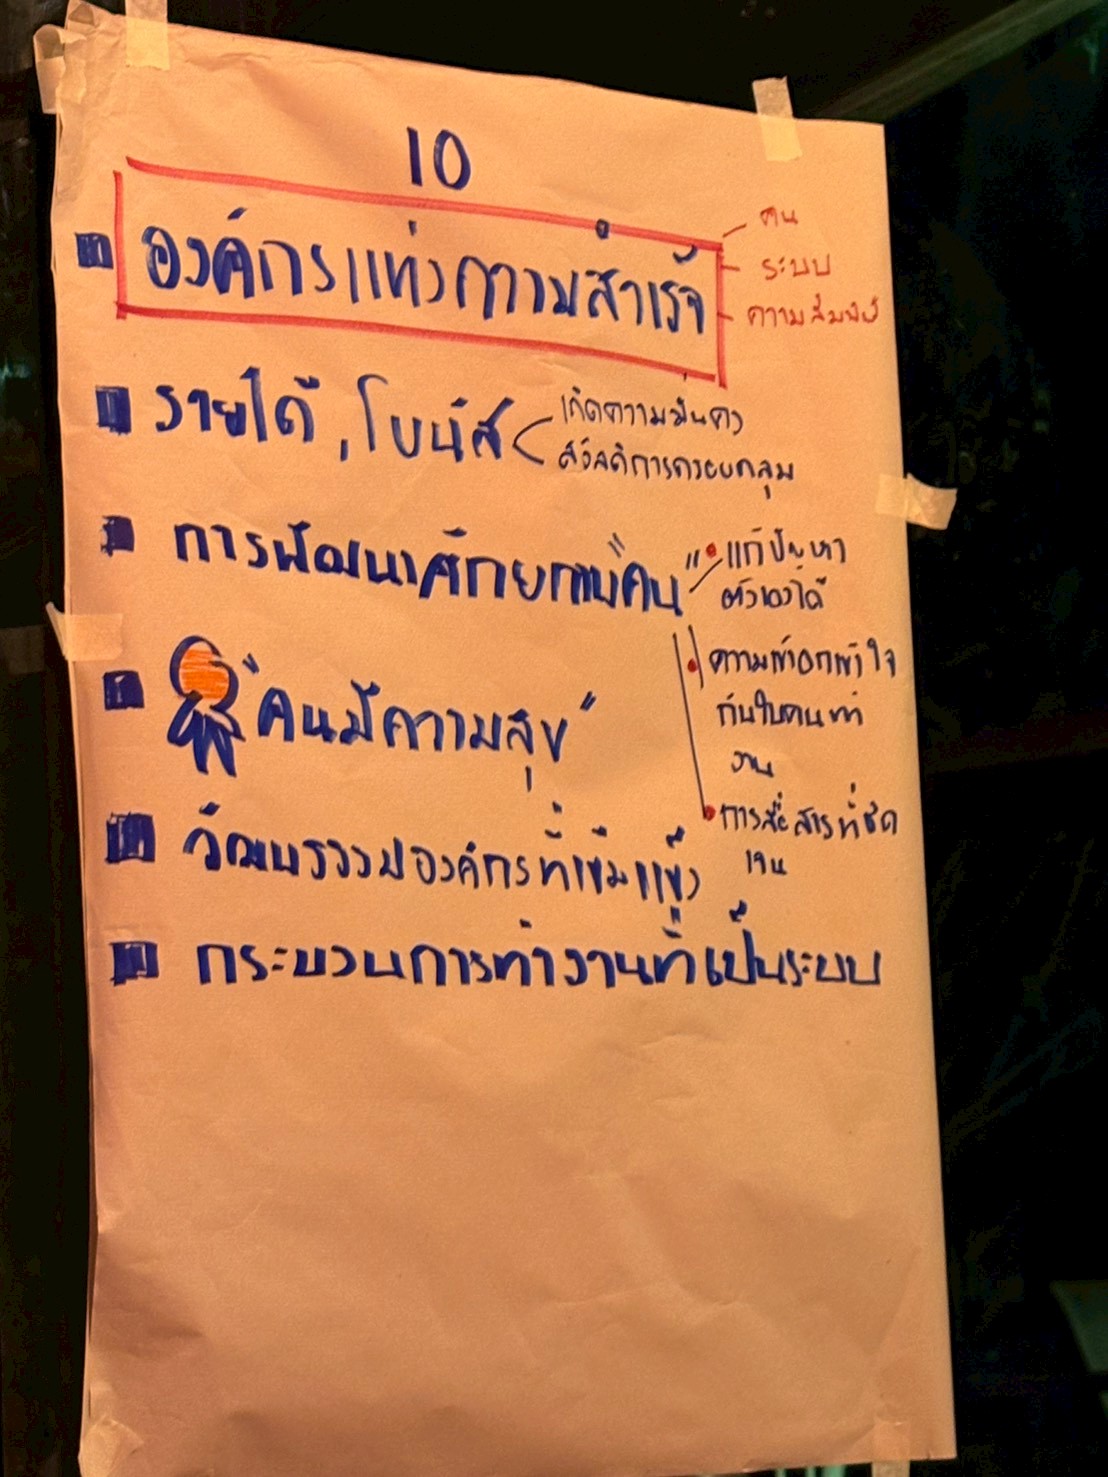 10
องค์กรแห่งความสำเร็จ
คน
ระบบ
ความสัมพันธ์
รายได้, โบนัส
เกิดความมั่นคง
สวัสดิการครอบคลุม
การพัฒนาศักยภาพคน"
แก้ปัญหา
ตัวเองได้
ความเข้าอกเข้าใจ
กันในคนทำ
งาน
การสื่อสารที่ชัด
เจน
"คนมีความสุข"
วัฒนธรรมองค์กรที่เข้มแข็ง
กระบวนการทำงานที่เป็นระบบ